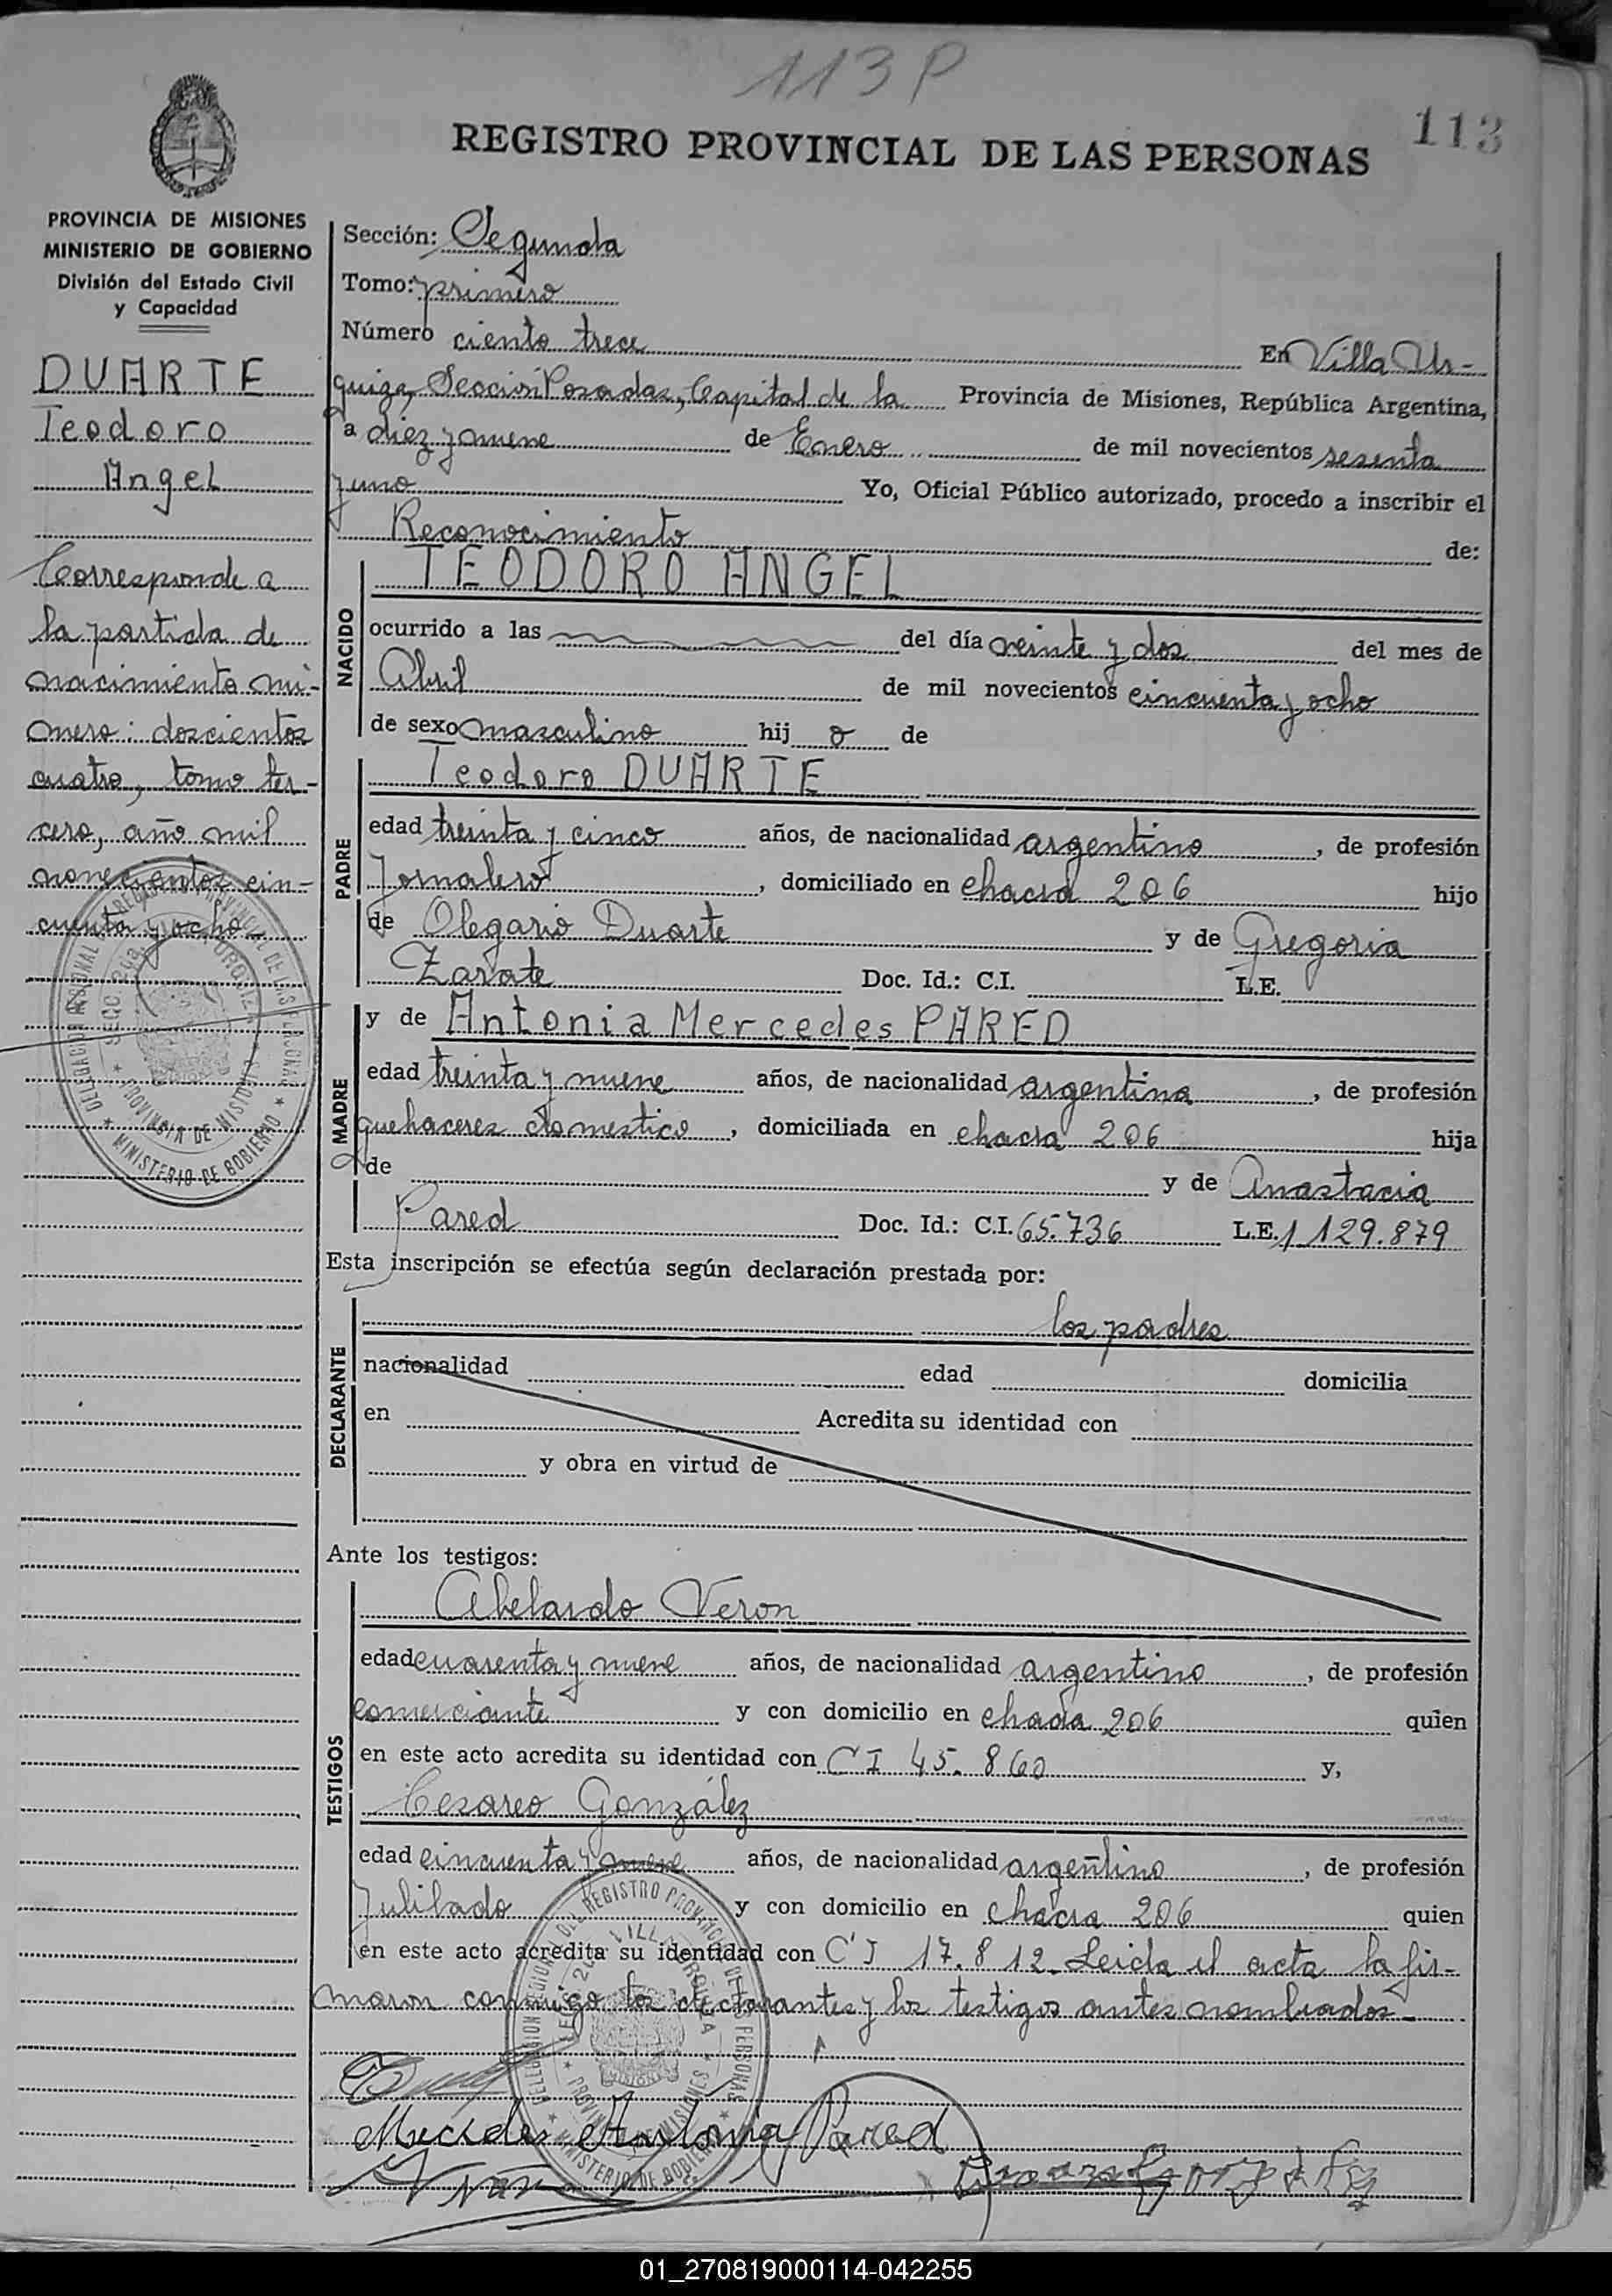 113 P
113
REGISTRO PROVINCIAL DE LAS PERSONAS
PROVINCIA DE MISIONES
MINISTERIO DE GOBIERNO
División del Estado Civil
y Capacidad
DUARTE
Teodoro
Angel
Corresponde a
la partida de
nacimiento nú-
mero: doscientos
cuatro, tomo ter-
cero, año mil
novecientos cin-
cuenta y ocho
Sección: Segunda
Tomo: primero
Número ciento trece En Villa Ur-
quiza, Sección Posadas, Capital de la Provincia de Misiones, República Argentina,
a diez y nueve de Enero de mil novecientos sesenta
y uno Yo, Oficial Público autorizado, procedo a inscribir el
Reconocimiento de:
TEODORO ANGEL
NACIDO
ocurrido a las del día veinte y dos del mes de
Abril de mil novecientos cincuenta y ocho
de sexo masculino hij o de
Teodoro DUARTE
PADRE
edad treinta y cinco años, de nacionalidad argentino, de profesión
Jornalero, domiciliado en chacra 206 hijo
de Olegario Duarte y de Gregoria
Zarate Doc. Id.: C.I. L.E.
y de Antonia Mercedes PARED
MADRE
edad treinta y nueve años, de nacionalidad argentina, de profesión
quehaceres domestico, domiciliada en chacra 206 hija
de y de Anastacia
Pared Doc. Id.: C.I. 65.736 L.E. 1.129.879
Esta inscripción se efectúa según declaración prestada por:
los padres
DECLARANTE
nacionalidad edad domicilia
en Acredita su identidad con
y obra en virtud de
Ante los testigos:
Abelardo Veron
TESTIGOS
edad cuarenta y nueve años, de nacionalidad argentino, de profesión
comerciante y con domicilio en chacra 206 quien
en este acto acredita su identidad con CI 45.860 y,
Cesareo González
edad cincuenta y nueve años, de nacionalidad argentino, de profesión
Jubilado y con domicilio en chacra 206 quien
en este acto acredita su identidad con CI 17.812. Leida el acta la fir-
maron conmigo los declarantes y los testigos antes nombrados.
Mercedes Antonia Pared
01_270819000114-042255